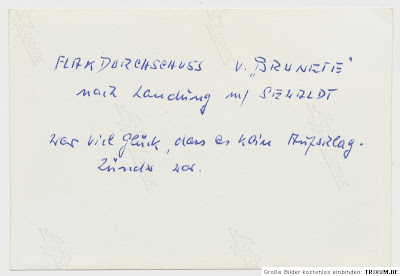 FLAKDURCHSCHUSS v. „BRUNETE"
nach Landung m/ SEWALDT
war viel Glück, dass es kein Aufschlag-
Zünder war.
Große Bilder kostenlos einbinden: TRIXUM.DE